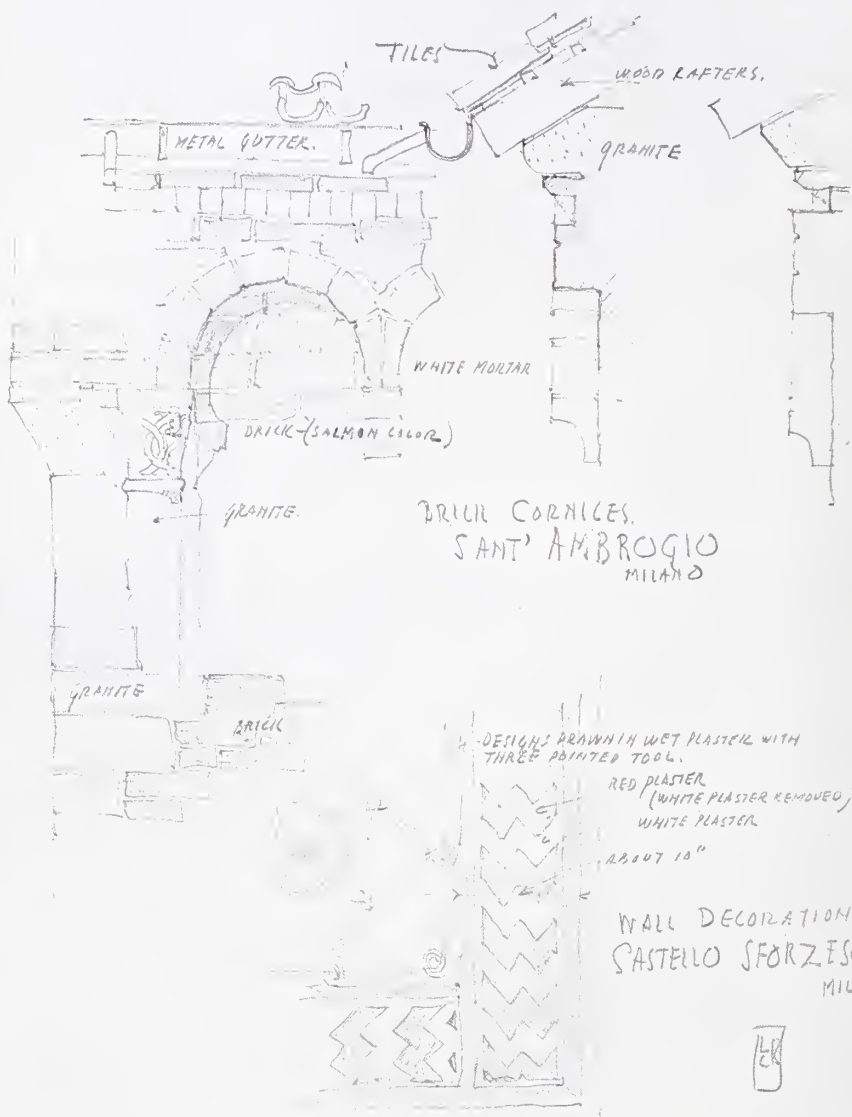 TILES
WOOD RAFTERS.
METAL GUTTER.
GRANITE
WHITE MORTAR
BRICK-(SALMON COLOR)
GRANITE.
BRICK CORNICES.
SANT' AMBROGIO
MILANO
GRANITE
BRICK
DESIGNS DRAWN IN WET PLASTER WITH
THREE POINTED TOOL.
RED PLASTER
(WHITE PLASTER REMOVED)
WHITE PLASTER
ABOUT 10"
WALL DECORATION
CASTELLO SFORZES
MIL